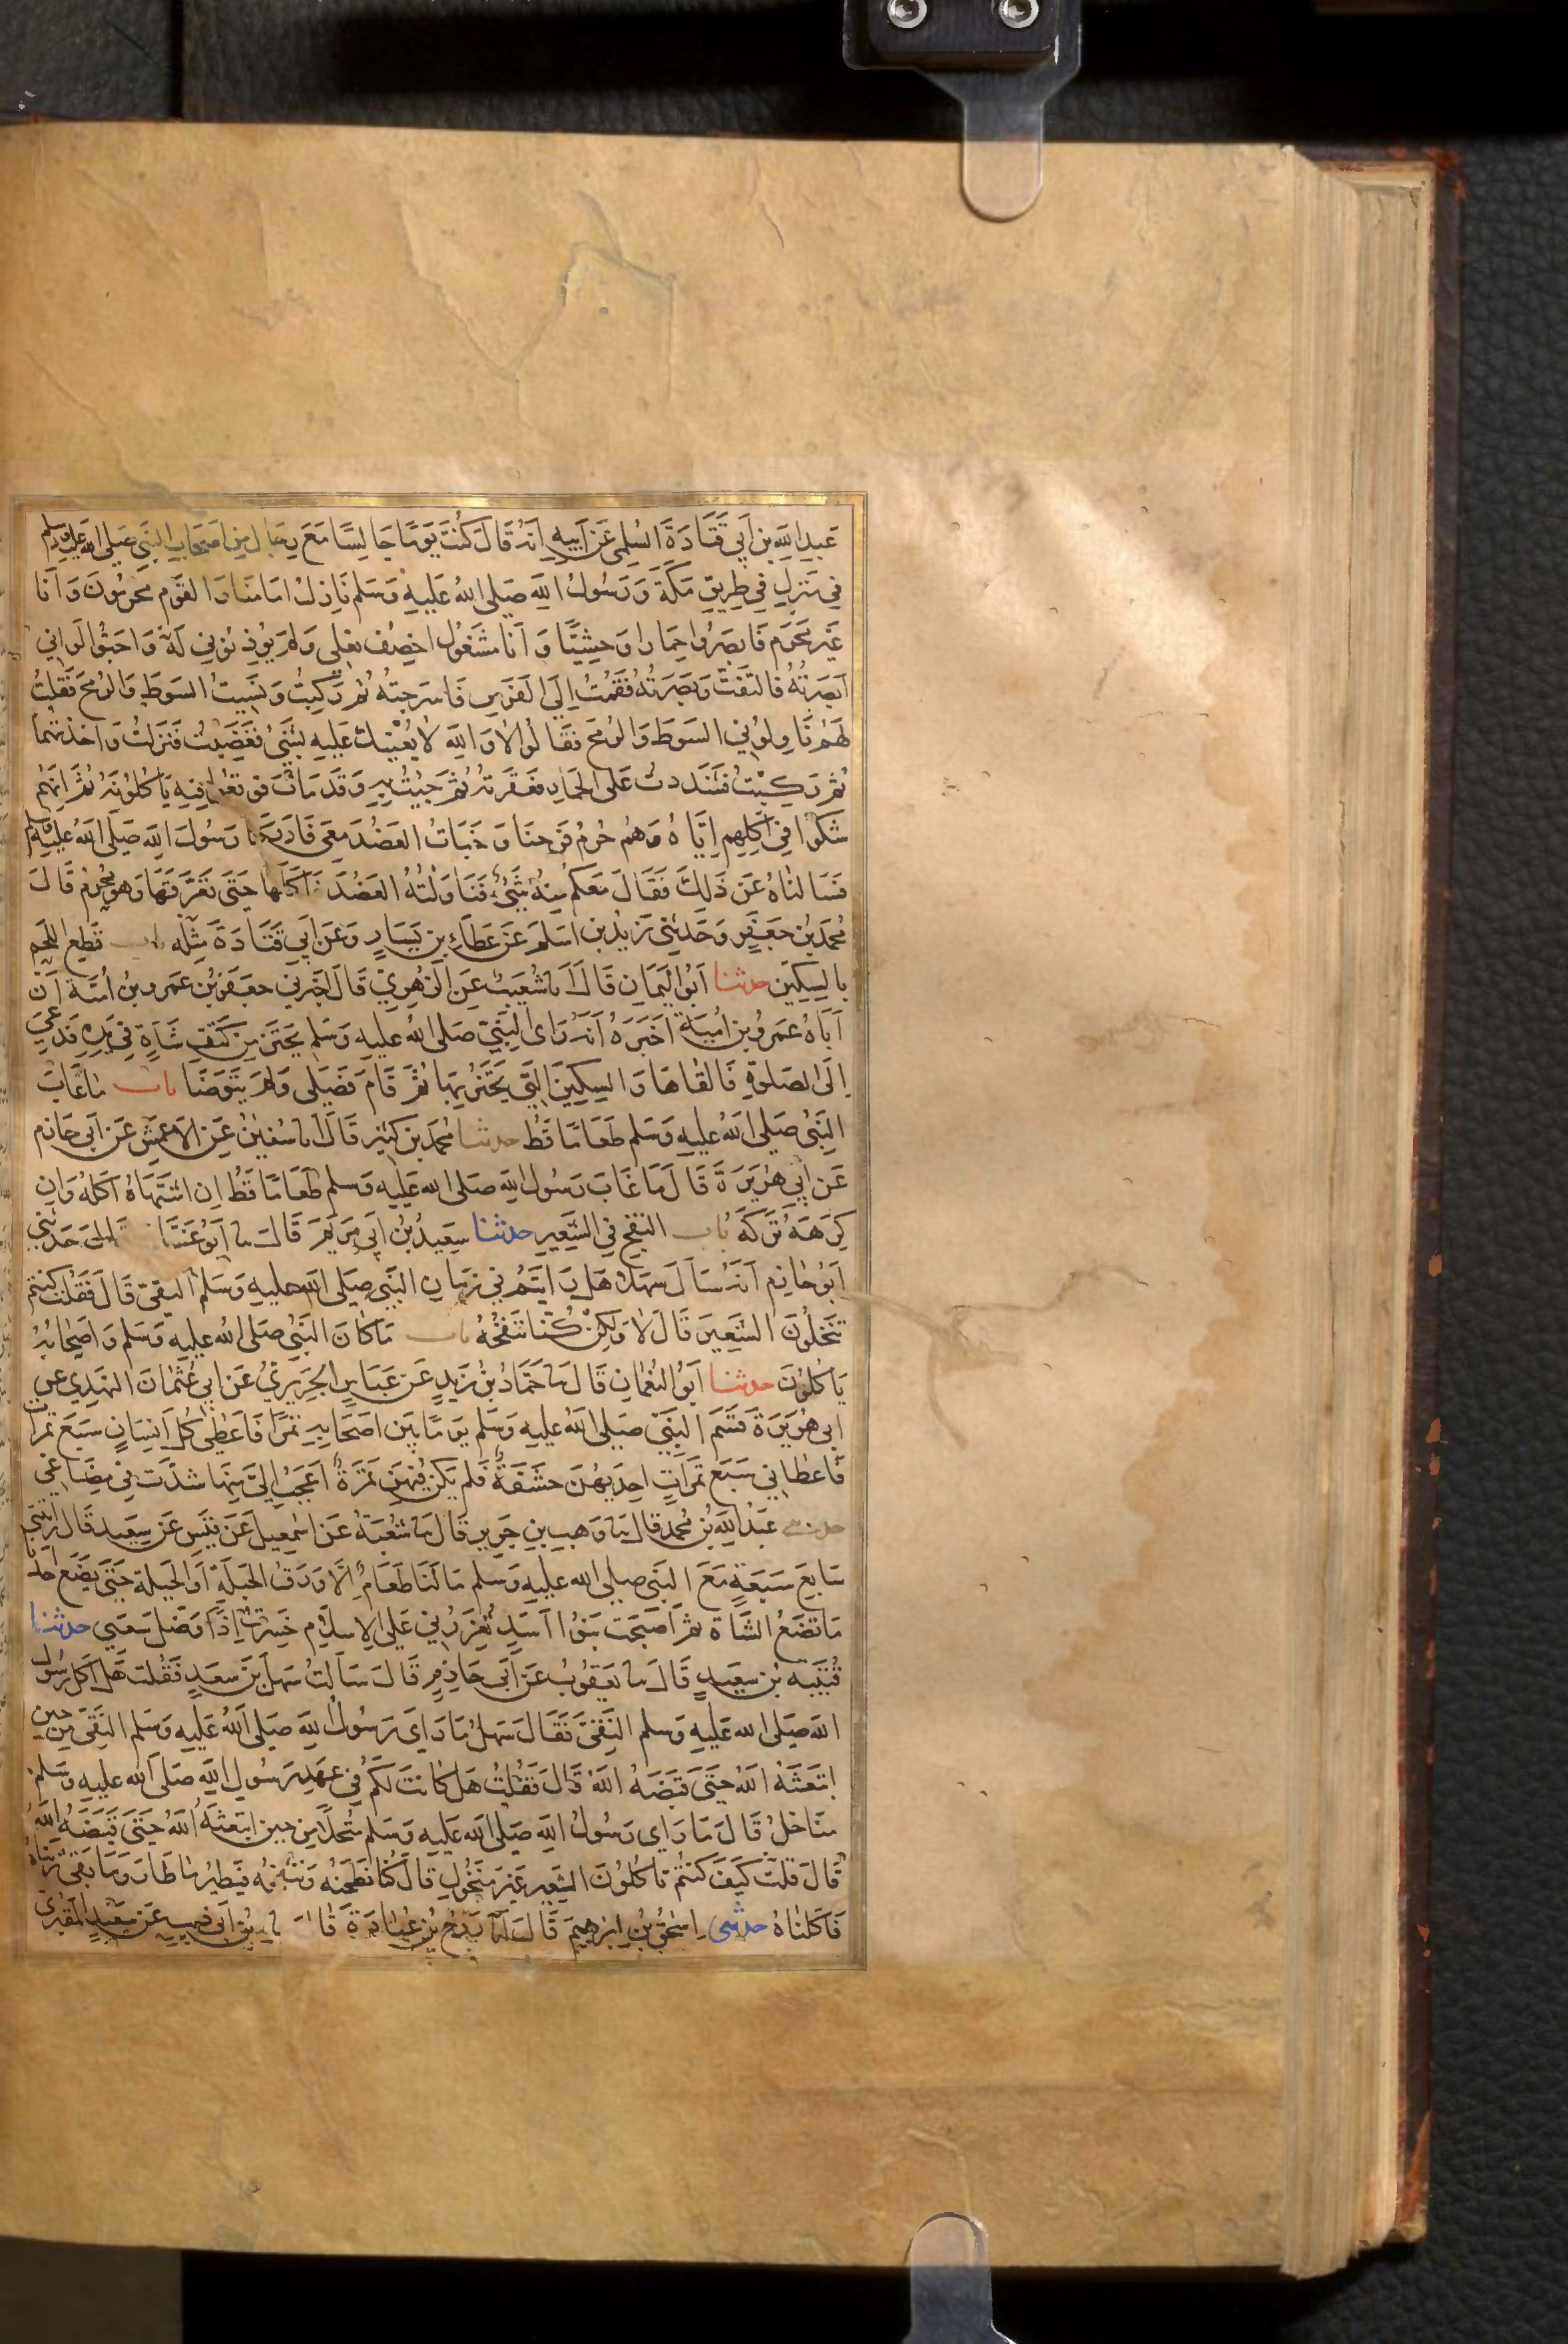 عبدالله بن ابي قتادة السلمي عن ابيه انه قال كنت يوما جالسا مع رجال من اصحاب النبي صلى الله عليه وسلم
في منزل في طريق مكة ورسول الله صلى الله عليه وسلم نازل امامنا والقوم محرمون وانا
غير محرم فابصروا حمارا وحشيا وانا مشغول اخصف نعلي ولم يوذنوني له واحبوا لو اني
ابصرته فالتفت وبصرته فقمت الى الفرس فاسرجته ثم ركبت ونسيت السوط والرمح فقلت
لهم ناولوني السوط والرمح فقالوا لا والله لا نعينك عليه بشيء فغضبت فنزلت واخذتهما
ثم ركبت فشددت على الحمار فعقرته ثم جيت به وقد مات فوقعوا فيه ياكلونه ثم انهم
شكوا في اكلهم اياه وهم حرم فرحنا وخبات العضد معي فادركنا رسول الله صلى الله عليه وسلم
فسالناه عن ذلك فقال معكم منه شيء فناولته العضد فاكلها حتى تعرقها وهو محرم قال
محمد بن جعفر وحدثني زيد بن اسلم عن عطاء بن يسار وعن ابي قتادة مثله باب قطع اللحم
بالسكين حدثنا ابو اليمان قال انا شعيب عن الزهري قال اخبرني جعفر بن عمرو بن امية ان
اباه عمرو بن امية اخبره انه راى النبي صلى الله عليه وسلم يحتز من كتف شاة في يده فدعي
الى الصلوة فالقاها والسكين التي يحتز بها ثم قام فصلى ولم يتوضا باب ما عاب
النبي صلى الله عليه وسلم طعاما قط حدثنا محمد بن كثير قال انا سفين عن الاعمش عن ابي حازم
عن ابي هريرة قال ما عاب رسول الله صلى الله عليه وسلم طعاما قط ان اشتهاه اكله وان
كرهه تركه باب النفخ في الشعير حدثنا سعيد بن ابي مريم قال نا ابو غسان قال حدثني
ابو حازم انه سال سهلا هل رايتم في زمان النبي صلى الله عليه وسلم النقي قال فقلت كنتم
تنخلون الشعير قال لا ولكن كنا ننفخه باب ما كان النبي صلى الله عليه وسلم واصحابه
ياكلون حدثنا ابو النعمان قال نا حماد بن زيد عن عباس الجريري عن ابي عثمان النهدي عن
ابي هريرة قسم النبي صلى الله عليه وسلم يوما بين اصحابه تمرا فاعطى كل انسان سبع تمرات
فاعطاني سبع تمرات احديهن حشفة فلم يكن فيهن تمرة اعجب الي منها شدت في مضاغي
حدثنا عبدالله بن محمد قال نا وهب بن جرير قال نا شعبة عن اسمعيل عن قيس عن سعيد قال رايتني
سابع سبعة مع النبي صلى الله عليه وسلم ما لنا طعام الا ورق الحبلة او الحبلة حتى يضع احدنا
ما تضع الشاة ثم اصبحت بنوا اسد تعزرني على الاسلام خسرت اذا وضل سعيي حدثنا
قتيبة بن سعيد قال نا يعقوب عن ابي حازم قال سالت سهل بن سعد فقلت هل اكل رسول
الله صلى الله عليه وسلم النقي فقال سهل ما راى رسول الله صلى الله عليه وسلم النقي من حين
ابتعثه الله حتى قبضه الله قال فقلت هل كانت لكم في عهد رسول الله صلى الله عليه وسلم
مناخل قال ما راى رسول الله صلى الله عليه وسلم منخلا من حين ابتعثه الله حتى قبضه الله
قال قلت كيف كنتم تاكلون الشعير غير منخول قال كنا نطحنه وننفخه فيطير ما طار وما بقي ثريناه
فاكلناه حدثني اسحق بن ابرهيم قال انا روح بن عبادة قال نا بن ابي ذيب عن سعيد المقبري